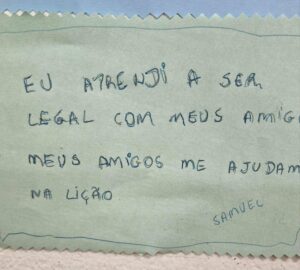 EU ATRENDI A SER
LEGAL COM MEUS AMIG
MEUS AMIGOS ME AJUDAM
NA LIÇÃO
SAMUEL